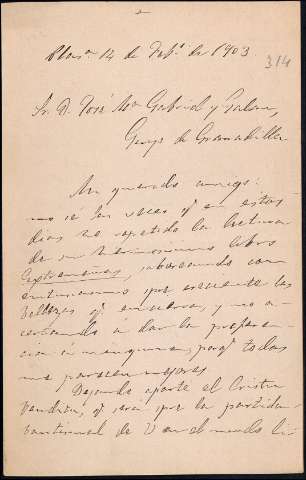 14 de Feb.º de 1903
314
Sr. D. José M.ª Gabriel y Galan,
Guijo de Granadilla
Mi querido amigo:
no sé las veces q. en estos
dias he repetido la lectura
de su hermosisimo libro
Extremeñas, saboreando con
entusiasmo las
bellezas q. encierra, y no a-
certando a dar la preferen-
cia a ninguna, porq. todas
me parecen mejores
Dejando aparte el Cristu
benditu, q. será por la partida
bautismal de V en el mundo li-